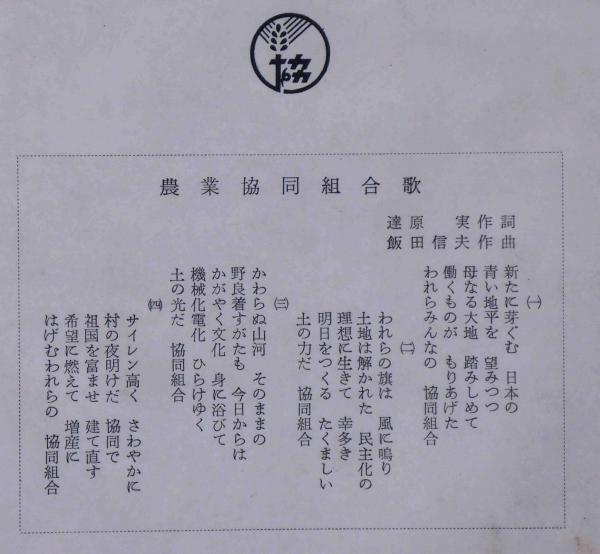 協
農業協同組合歌
達原 実作詞
飯田信夫作曲
(一)
新たに芽ぐむ 日本の
青い地平を 望みつつ
母なる大地 踏みしめて
働くものが もりあげた
われらみんなの 協同組合
(二)
われらの旗は 風に鳴り
土地は解かれた 民主化の
理想に生きて 幸多き
明日をつくる たくましい
土の力だ 協同組合
(三)
かわらぬ山河 そのままの
野良着すがたも 今日からは
かがやく文化 身に浴びて
機械化電化 ひらけゆく
土の光だ 協同組合
(四)
サイレン高く さわやかに
村の夜明けだ 協同で
祖国を富ませ 建て直す
希望に燃えて 増産に
はげむわれらの 協同組合